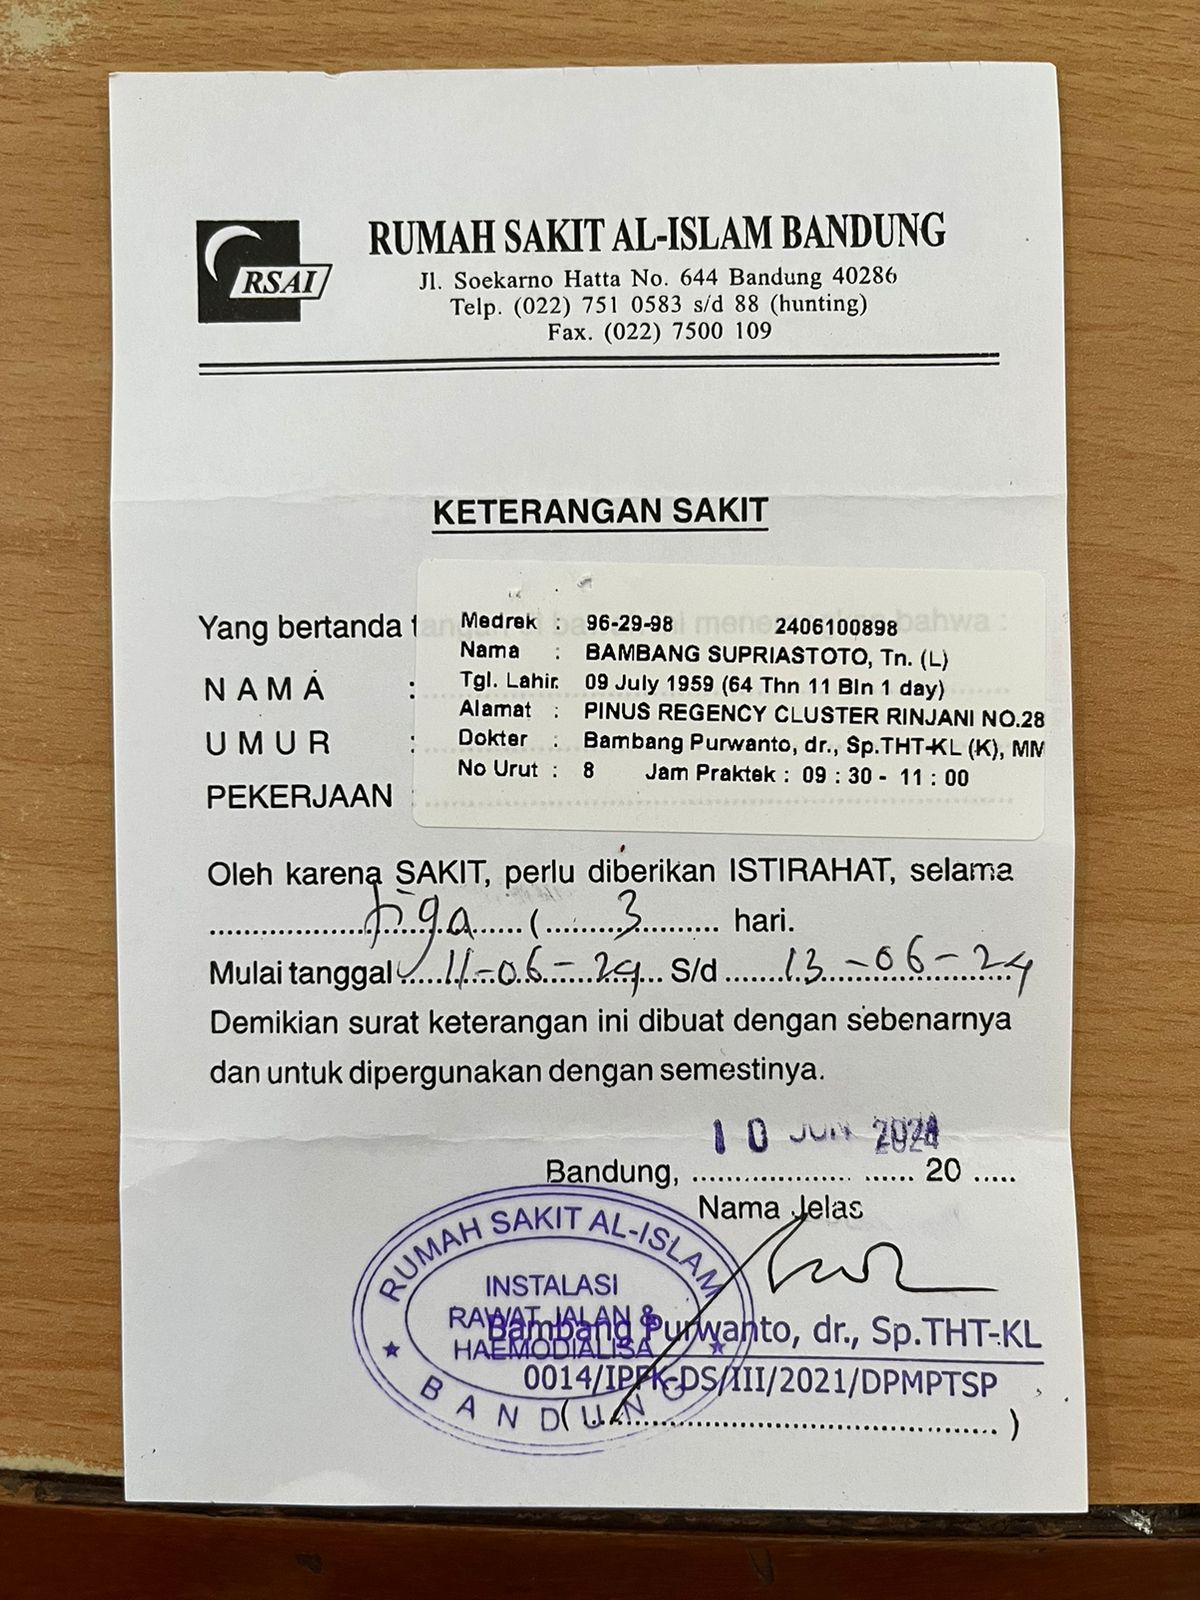 RSAI
RUMAH SAKIT AL-ISLAM BANDUNG
Jl. Soekarno Hatta No. 644 Bandung 40286
Telp. (022) 751 0583 s/d 88 (hunting)
Fax. (022) 7500 109
KETERANGAN SAKIT
Yang bertanda tangan di bawah ini menerangkan bahwa :
Medrek : 96-29-98 2406100898
Nama : BAMBANG SUPRIASTOTO, Tn. (L)
Tgl. Lahir. 09 July 1959 (64 Thn 11 Bln 1 day)
Alamat : PINUS REGENCY CLUSTER RINJANI NO.28
Dokter : Bambang Purwanto, dr., Sp.THT-KL (K), MM
No Urut : 8 Jam Praktek : 09 : 30 - 11 : 00
NAMA :
UMUR :
PEKERJAAN :
Oleh karena SAKIT, perlu diberikan ISTIRAHAT, selama
tiga ( 3 hari.
Mulai tanggal 11-06-24 S/d 13-06-24
Demikian surat keterangan ini dibuat dengan sebenarnya
dan untuk dipergunakan dengan semestinya.
10 JUN 2024
Bandung, .................... ...... 20 .....
Nama Jelas
RUMAH SAKIT AL-ISLAM
INSTALASI
RAWAT JALAN &
HAEMODIALISA
BANDUNG
Bambang Purwanto, dr., Sp.THT-KL
0014/IPPK-DS/III/2021/DPMPTSP
(........................................)